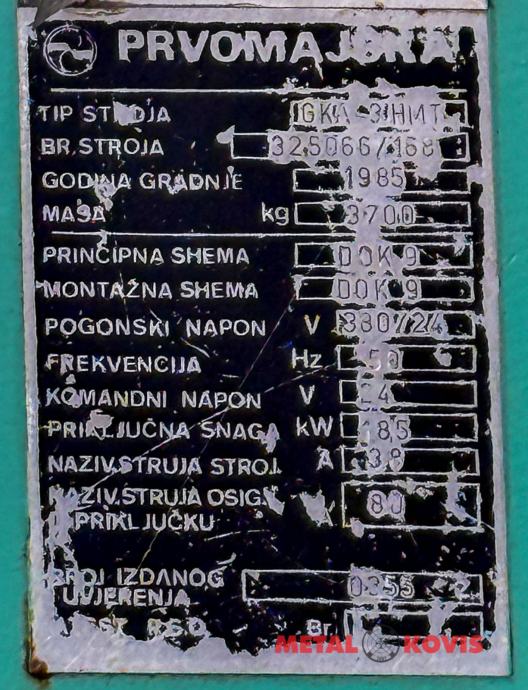 PRVOMAJSKA
TIP STROJA
BR. STROJA 325066/168
GODINA GRADNJE 1985
MASA kg 3700
PRINCIPNA SHEMA DOK 9
MONTAŽNA SHEMA DOK 9
POGONSKI NAPON V 380/24
FREKVENCIJA Hz 50
KOMANDNI NAPON V 24
PRIKLJUČNA SNAGA kW 18,5
NAZIV.STRUJA STROJ. A 38
NAZIV.STRUJA OSIG. A 80
U PRIKLJUČKU
BROJ IZDANOG 0355
UVJERENJA
Br.
METAL KOVIS